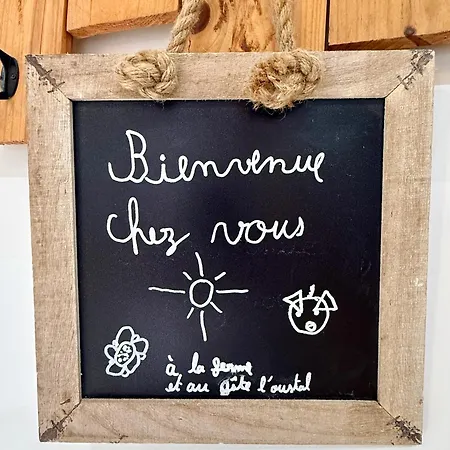 Bienvenue
chez vous
à la ferme
et au gîte l'oustal